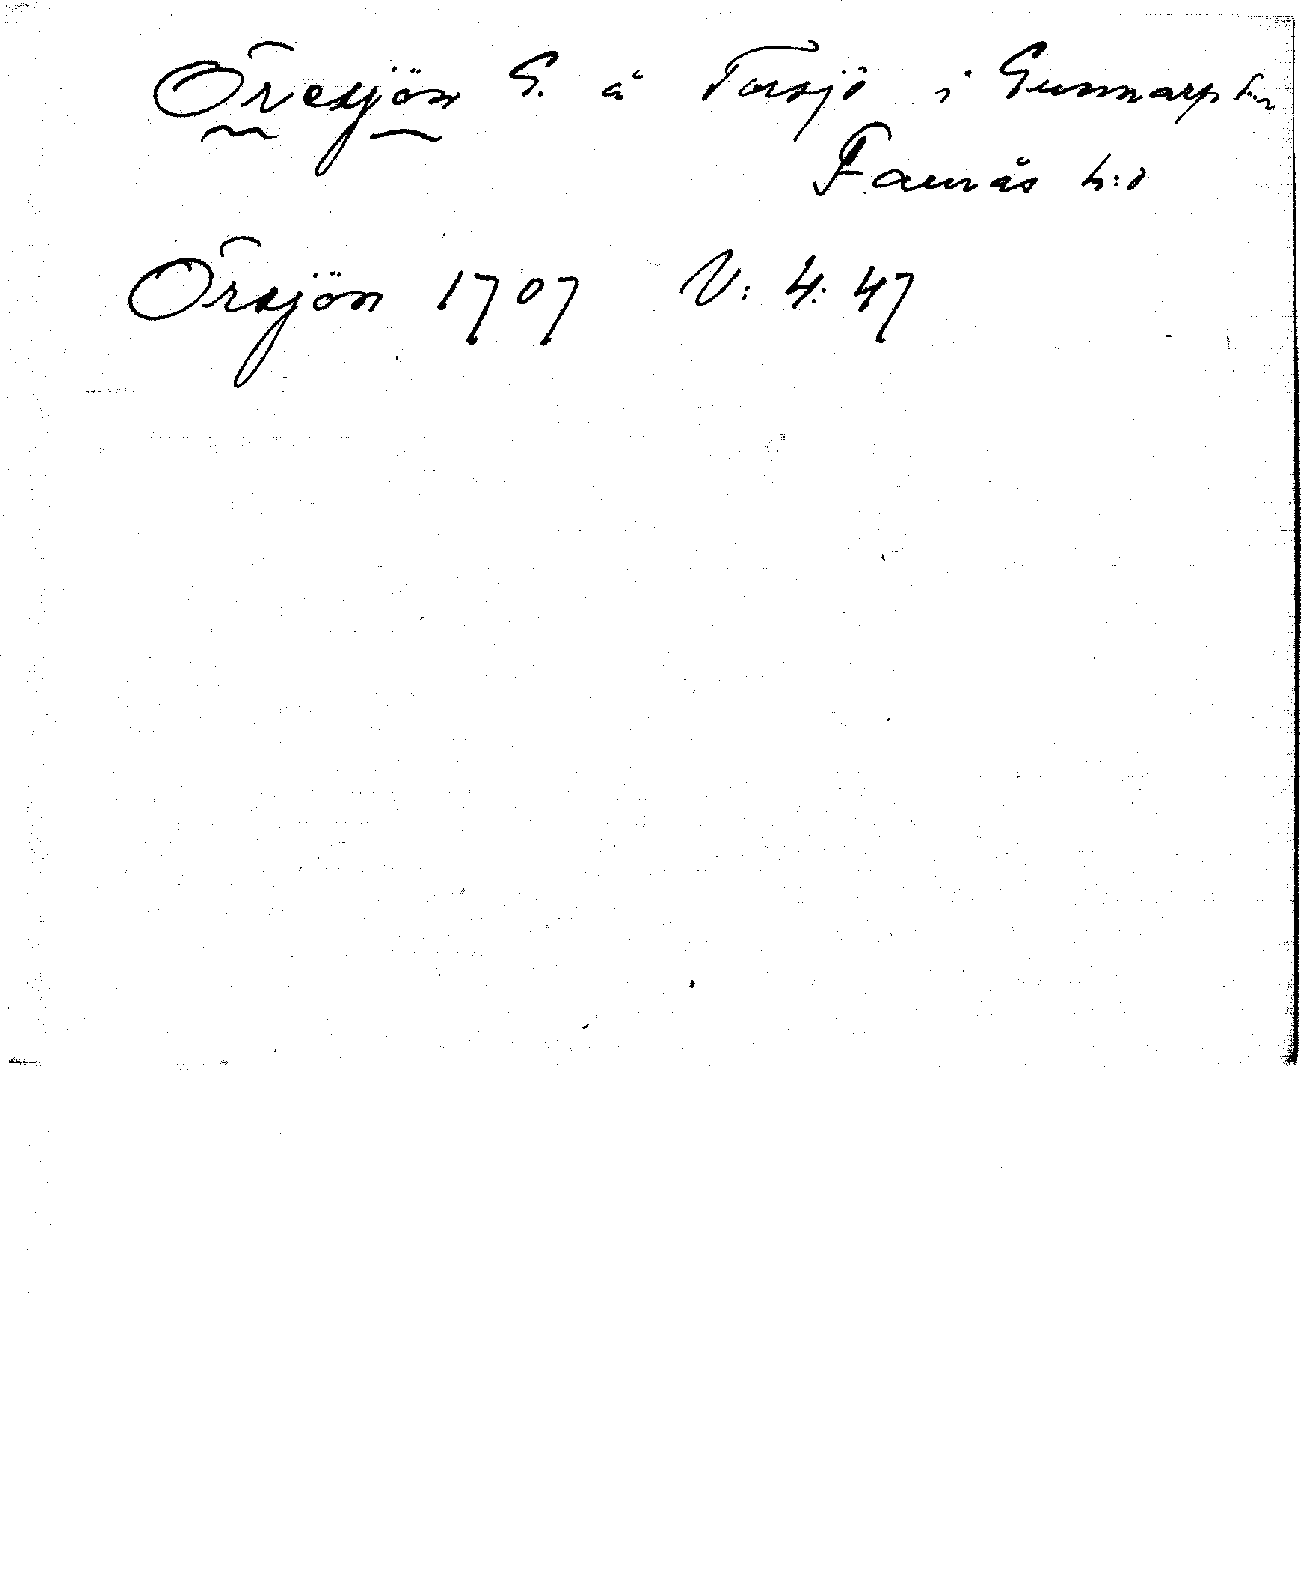 Öresjön S. å Torsjö i Gunnarps sn
Faurås h:d
Örsjön 1707 V: 4: 47